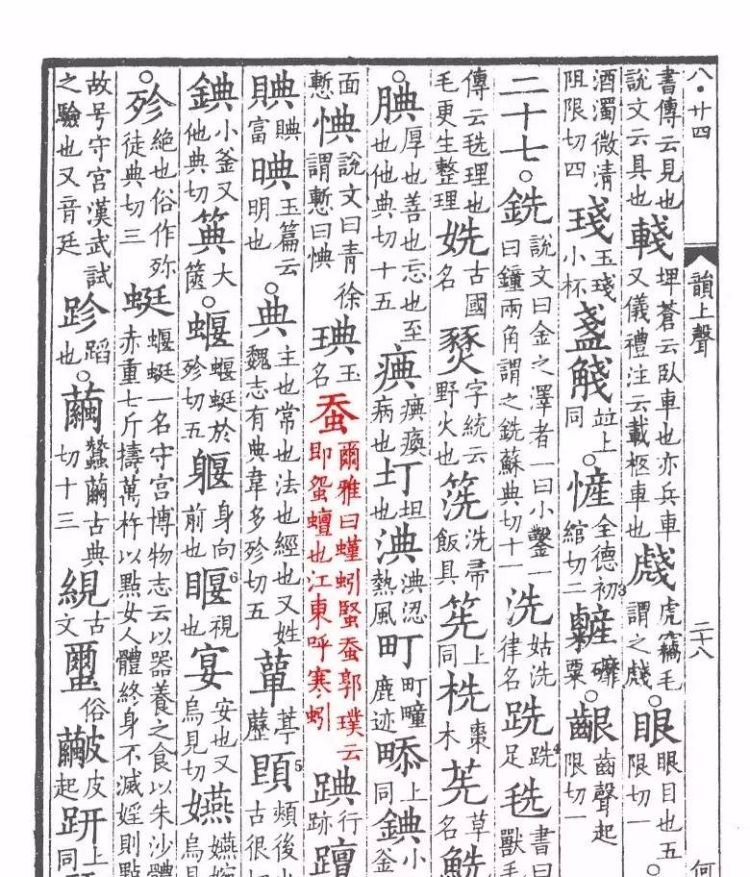 八·廿四　韻上聲　二十八　何
書傳云見也說文云具也輚埤蒼云臥車也亦兵車又儀禮注云載柩車也虥虎竊毛謂之虥○眼眼目也五限切一○
酒濁微清阻限切四琖玉琖小杯盞竝上同○㦃全德初綰切二粟○齦齒聲起限切一
二十七○銑說文曰金之澤者一曰小鑿一曰鐘兩角謂之銑蘇典切十一洗姑洗律名跣跣足毨書曰獸毛
傳云毨理也毛更生整理姺古國名燹字統云野火也箲洗帚飯具筅上同棗木草名
○腆厚也善也忘也至也他典切十五痶痶瘓病也圢坦也淟淟涊熱風町町疃鹿迹上同錪小釜
面慙㥏說文曰青徐謂慙曰㥏琠玉名蚕爾雅曰螼蚓蜸蚕郭璞云即䖤蟺也江東呼寒蚓行跡
賟賟富晪玉篇云明也○典主也常也法也經也又姓魏志有典韋多殄切五蕇葶藶頰後古很
錪小釜又他典切大篋○蝘蝘蜓於殄切五躽身向前也視也宴安也又烏見切嬿嬿婉烏見
○殄絕也俗作殄徒典切三蜓蝘蜓一名守宮博物志云以器養之食以朱沙體赤重七斤擣萬杵以點女人體終身不滅婬則點
故号守宮漢武試之驗也又音廷跈蹈也○繭蠶繭古典切十三絸古文蠒俗皮起趼上同